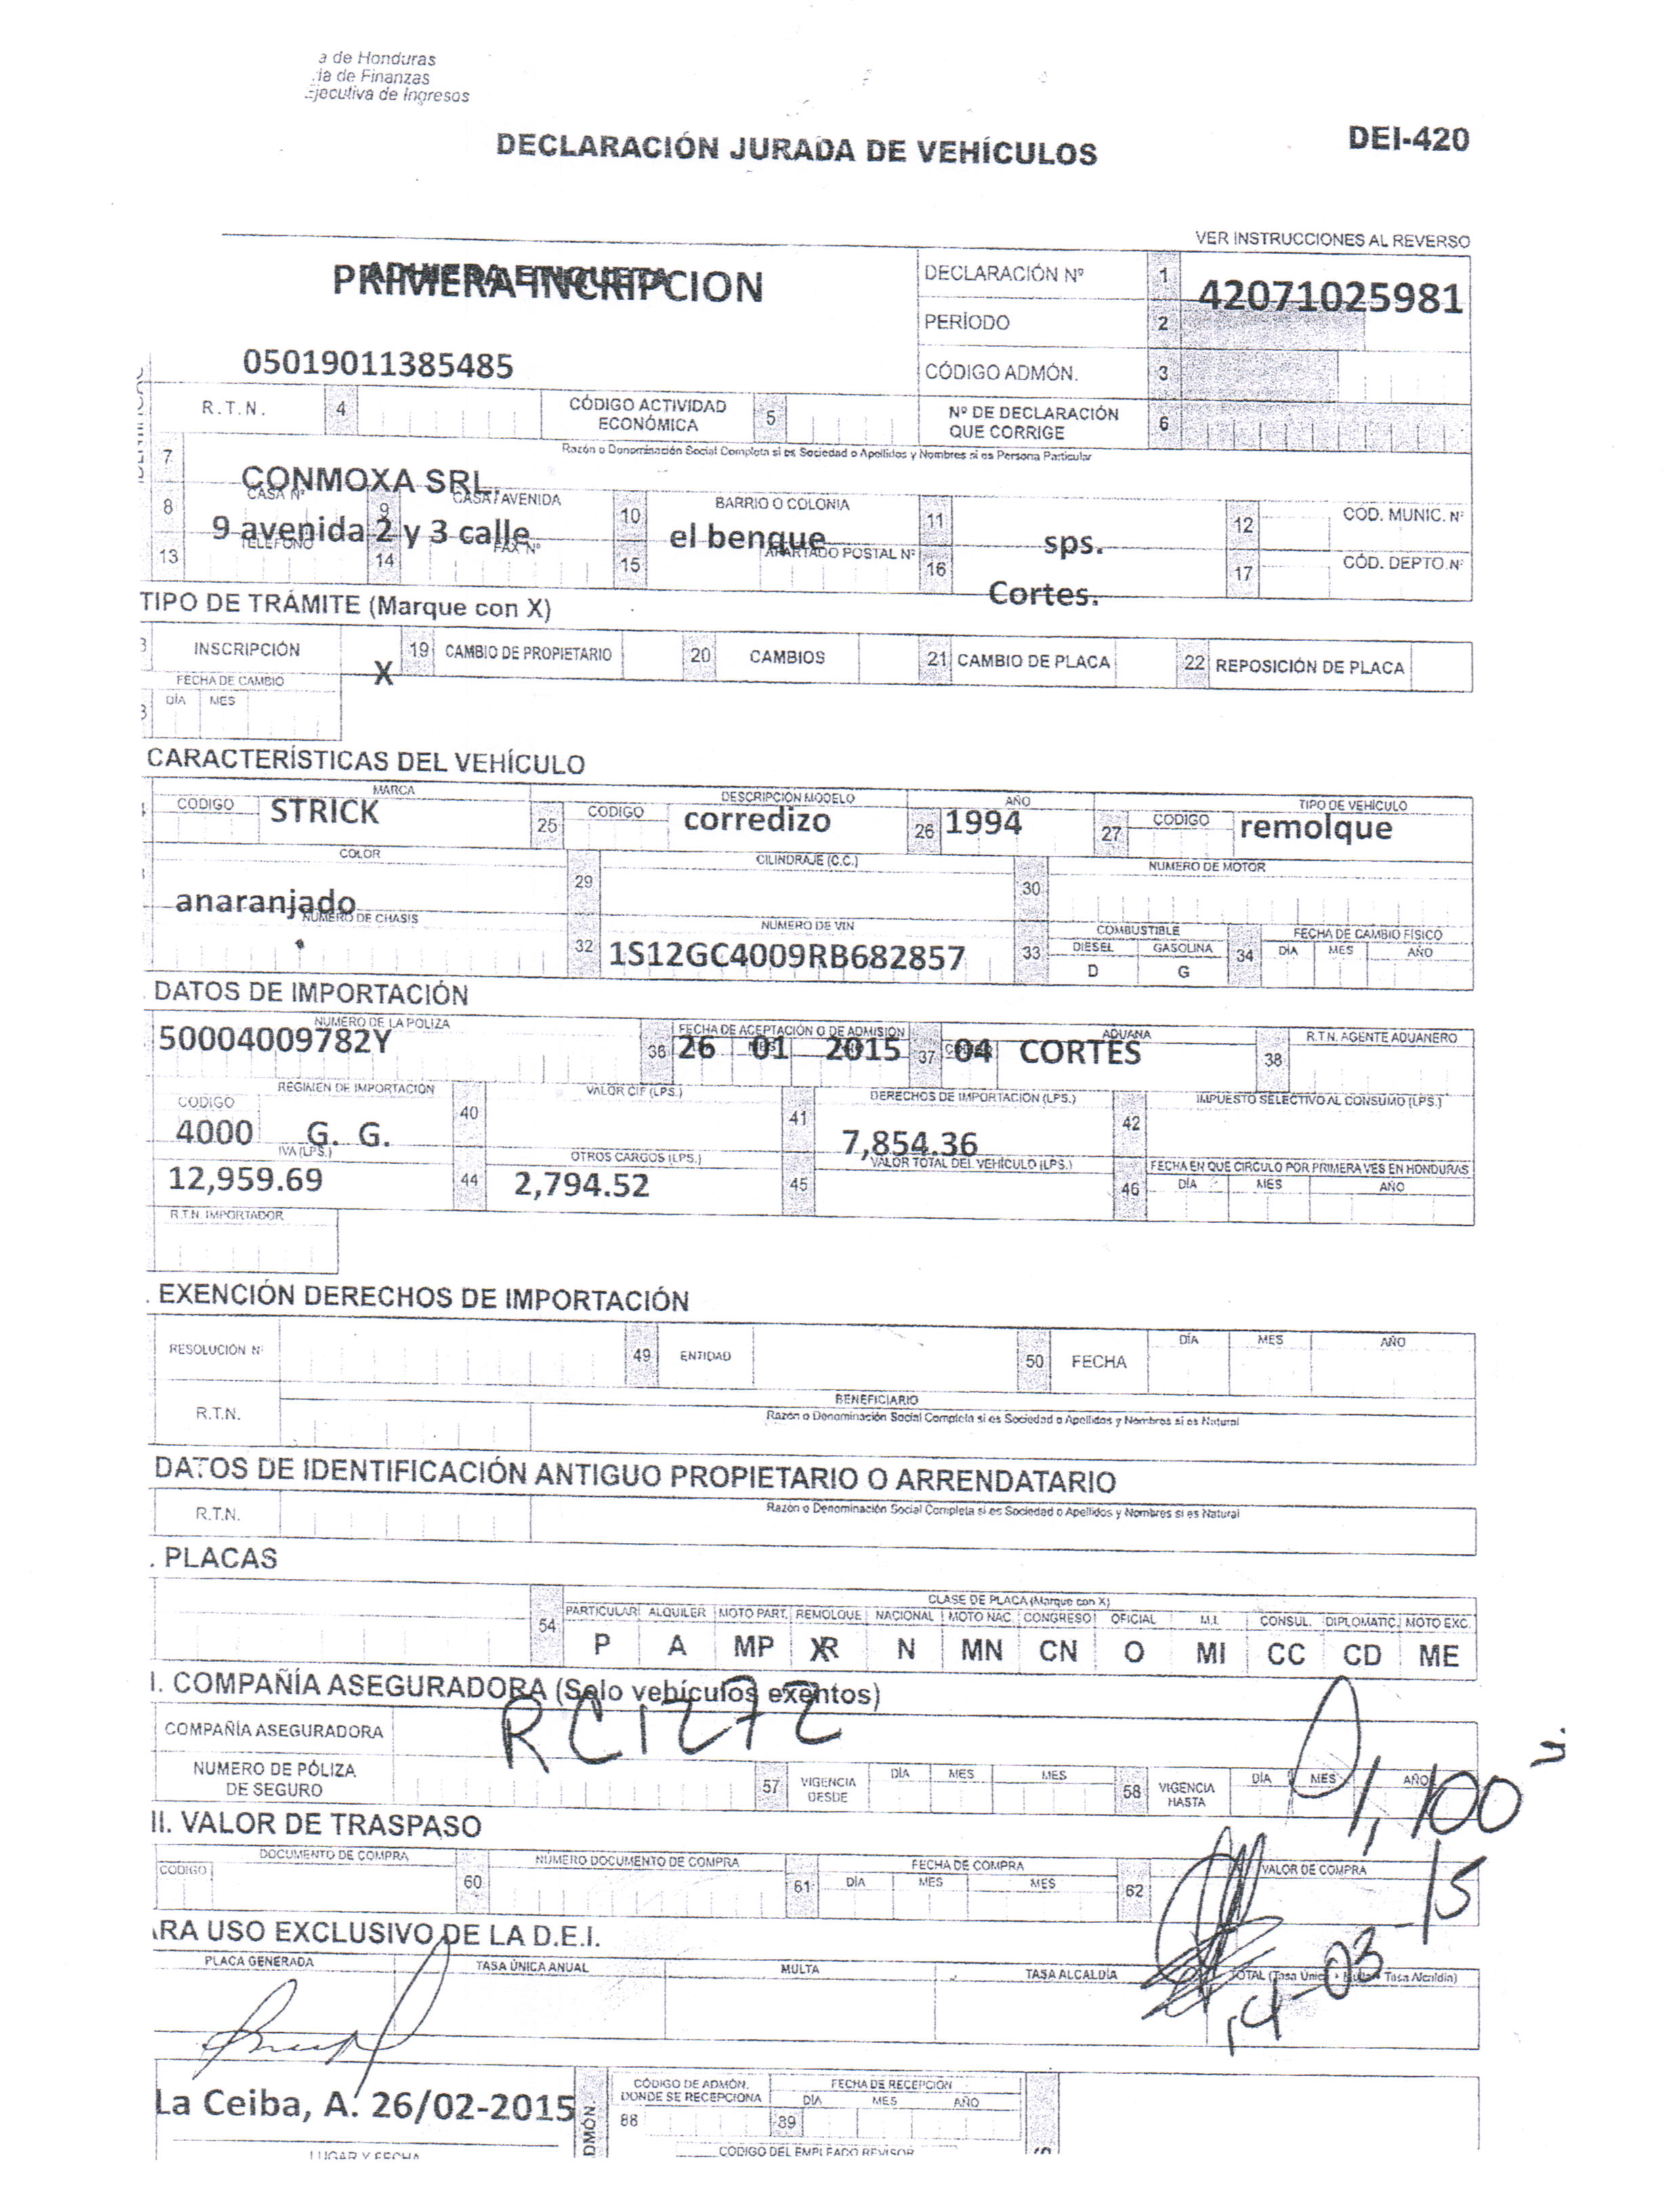 a de Honduras
ia de Finanzas
Ejecutiva de Ingresos
DECLARACIÓN JURADA DE VEHÍCULOS
DEI-420
VER INSTRUCCIONES AL REVERSO
PRIMERA INCRIPCION
DECLARACIÓN Nº 1 42071025981
PERÍODO 2
05019011385485
CÓDIGO ADMÓN. 3
R.T.N. 4 CÓDIGO ACTIVIDAD ECONÓMICA 5 Nº DE DECLARACIÓN QUE CORRIGE 6
7 Razón o Denominación Social Completa si es Sociedad o Apellidos y Nombres si es Persona Particular
CONMOXA SRL.
8 CASA Nº 9 CASA / AVENIDA 10 BARRIO O COLONIA 11 12 CÓD. MUNIC. Nº
9 avenida 2 y 3 calle el benque sps.
13 TELÉFONO 14 FAX Nº 15 APARTADO POSTAL Nº 16 17 CÓD. DEPTO. Nº
Cortes.
TIPO DE TRÁMITE (Marque con X)
INSCRIPCIÓN X 19 CAMBIO DE PROPIETARIO 20 CAMBIOS 21 CAMBIO DE PLACA 22 REPOSICIÓN DE PLACA
FECHA DE CAMBIO
DÍA MES
CARACTERÍSTICAS DEL VEHÍCULO
MARCA DESCRIPCIÓN MODELO AÑO TIPO DE VEHÍCULO
CODIGO STRICK 25 CODIGO corredizo 26 1994 27 CODIGO remolque
COLOR 29 CILINDRAJE (C.C.) 30 NUMERO DE MOTOR
anaranjado
NUMERO DE CHASIS NUMERO DE VIN COMBUSTIBLE FECHA DE CAMBIO FÍSICO
32 1S12GC4009RB682857 33 DIESEL GASOLINA 34 DÍA MES AÑO
D G
DATOS DE IMPORTACIÓN
NUMERO DE LA POLIZA FECHA DE ACEPTACIÓN O DE ADMISION ADUANA R.T.N. AGENTE ADUANERO
50004009782Y 36 26 01 2015 37 04 CORTES 38
REGIMEN DE IMPORTACIÓN VALOR CIF (LPS.) DERECHOS DE IMPORTACION (LPS.) IMPUESTO SELECTIVO AL CONSUMO (LPS.)
CODIGO 40 41 42
4000 G. G. 7,854.36
IVA (LPS.) OTROS CARGOS (LPS.) VALOR TOTAL DEL VEHÍCULO (LPS.) FECHA EN QUE CIRCULO POR PRIMERA VES EN HONDURAS
12,959.69 44 2,794.52 45 46 DÍA MES AÑO
R.T.N. IMPORTADOR
. EXENCIÓN DERECHOS DE IMPORTACIÓN
RESOLUCIÓN Nº 49 ENTIDAD 50 FECHA DÍA MES AÑO
BENEFICIARIO
R.T.N. Razón o Denominación Social Completa si es Sociedad o Apellidos y Nombres si es Natural
DATOS DE IDENTIFICACIÓN ANTIGUO PROPIETARIO O ARRENDATARIO
R.T.N. Razón o Denominación Social Completa si es Sociedad o Apellidos y Nombres si es Natural
. PLACAS
54 CLASE DE PLACA (Marque con X)
PARTICULAR ALQUILER MOTO PART. REMOLQUE NACIONAL MOTO NAC. CONGRESO OFICIAL M.I. CONSUL. DIPLOMATIC. MOTO EXC.
P A MP XR N MN CN O MI CC CD ME
I. COMPAÑÍA ASEGURADORA (Solo vehículos exentos)
COMPAÑÍA ASEGURADORA RC1272
NUMERO DE PÓLIZA DE SEGURO 57 VIGENCIA DESDE DÍA MES MES 58 VIGENCIA HASTA DÍA MES AÑO
1,100
II. VALOR DE TRASPASO
DOCUMENTO DE COMPRA NÚMERO DOCUMENTO DE COMPRA FECHA DE COMPRA VALOR DE COMPRA
CODIGO 60 61 DÍA MES MES 62
14-03-15
ARA USO EXCLUSIVO DE LA D.E.I.
PLACA GENERADA TASA ÚNICA ANUAL MULTA TASA ALCALDÍA TOTAL (Tasa Única + Multa + Tasa Alcaldía)
La Ceiba, A. 26/02-2015
LUGAR Y FECHA
DMÓN
CÓDIGO DE ADMÓN. DONDE SE RECEPCIONA FECHA DE RECEPCIÓN
88 89 DÍA MES AÑO
CÓDIGO DEL EMPLEADO REVISOR